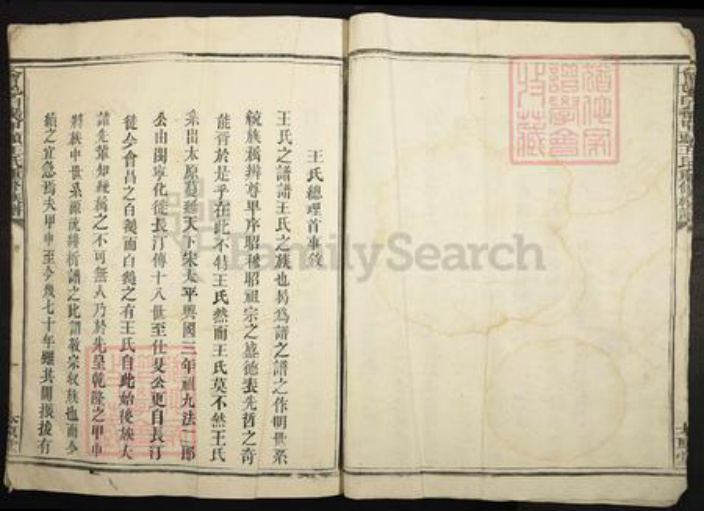 王氏總理首事錄
王氏之譜譜王氏之族也曷為譜之譜之作明世系
統族稱辨尊卑序昭穆昭祖宗之盛德表先哲之奇
能胥於是乎在此不特王氏然而王氏莫不然王氏
系出太原蔓延天下宋太平興國三年祖九法二郎
公由閩寧化徙長汀傳十八世至仕旻公更自長汀
徙今會昌之白鵝而白鵝之有王氏自此始後族大
諸先輩知統稱之不可無人乃於先皇乾隆之甲申
將族中世系源流析譜之此譜敬宗收族也而今
續之宜急焉夫甲申至今幾七十年雖其間振拔有
譜學會
收藏
FamilySearch